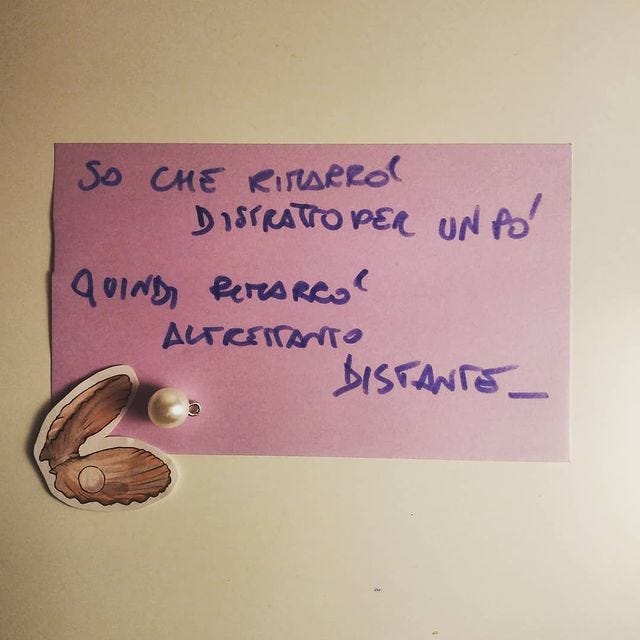 SO CHE RIMARRO'
DISTRATTO PER UN PO'
QUINDI RIMARRO'
ALTRETTANTO
DISTANTE_